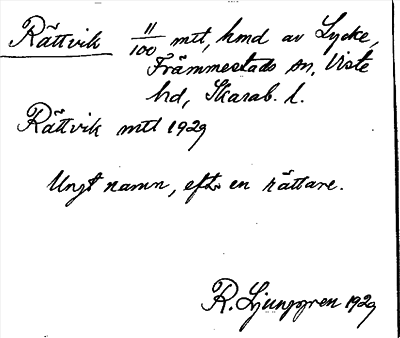 Rättvik 11/100 mtt, hmd av Lycke,
Främmestads sn, Viste
hd, Skarab. l.
Rättvik mtl 1929
Ungt namn, eft. en rättare.
R. Ljunggren 1929